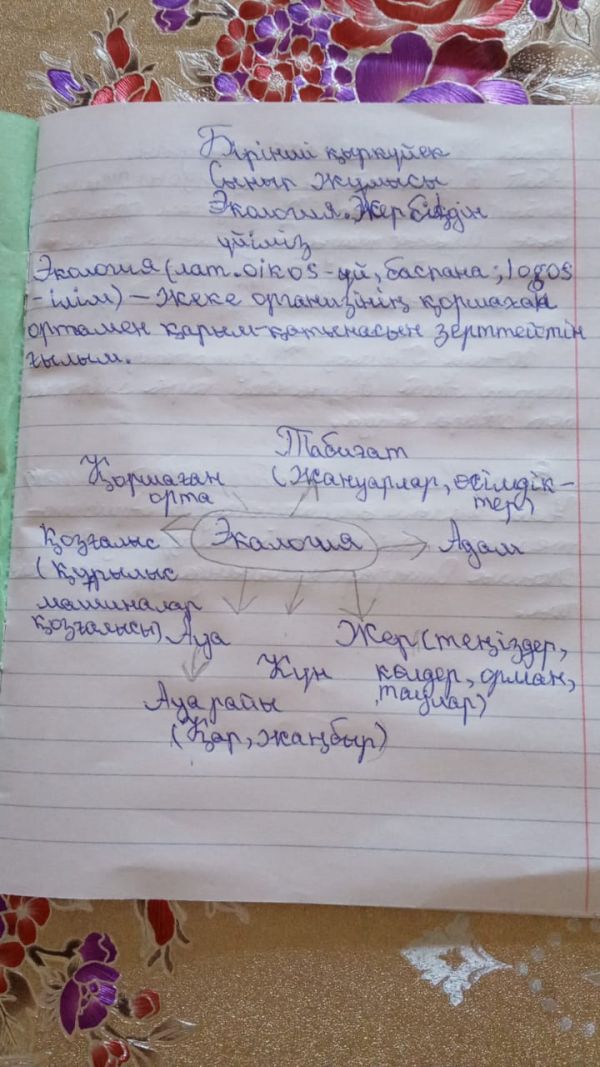 Бірінші қыркүйек
Сынып жұмысы
Экология. Жер біздің
үйіміз
Экология (лат. oikos - үй, баспана; logos
- ілім) – жеке организінің қоршаған
ортамен қарым-қатынасын зерттейтін
ғылым.
Табиғат
(Жануарлар, өсімдік-
тер)
Қоршаған
орта
Экология
Адам
Қозғалыс
(құрылыс
машиналар
қозғалысы)
Ауа
Жер (теңіздер,
көлдер, орман,
таулар)
Күн
Ауа райы
(Қар, жаңбыр)